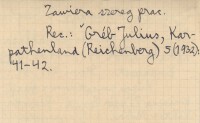 Zawiera szereg prac.
Rec.: Gréb Julius, Kar-
pathenland (Reichenberg) 5 (1932),
41-42.